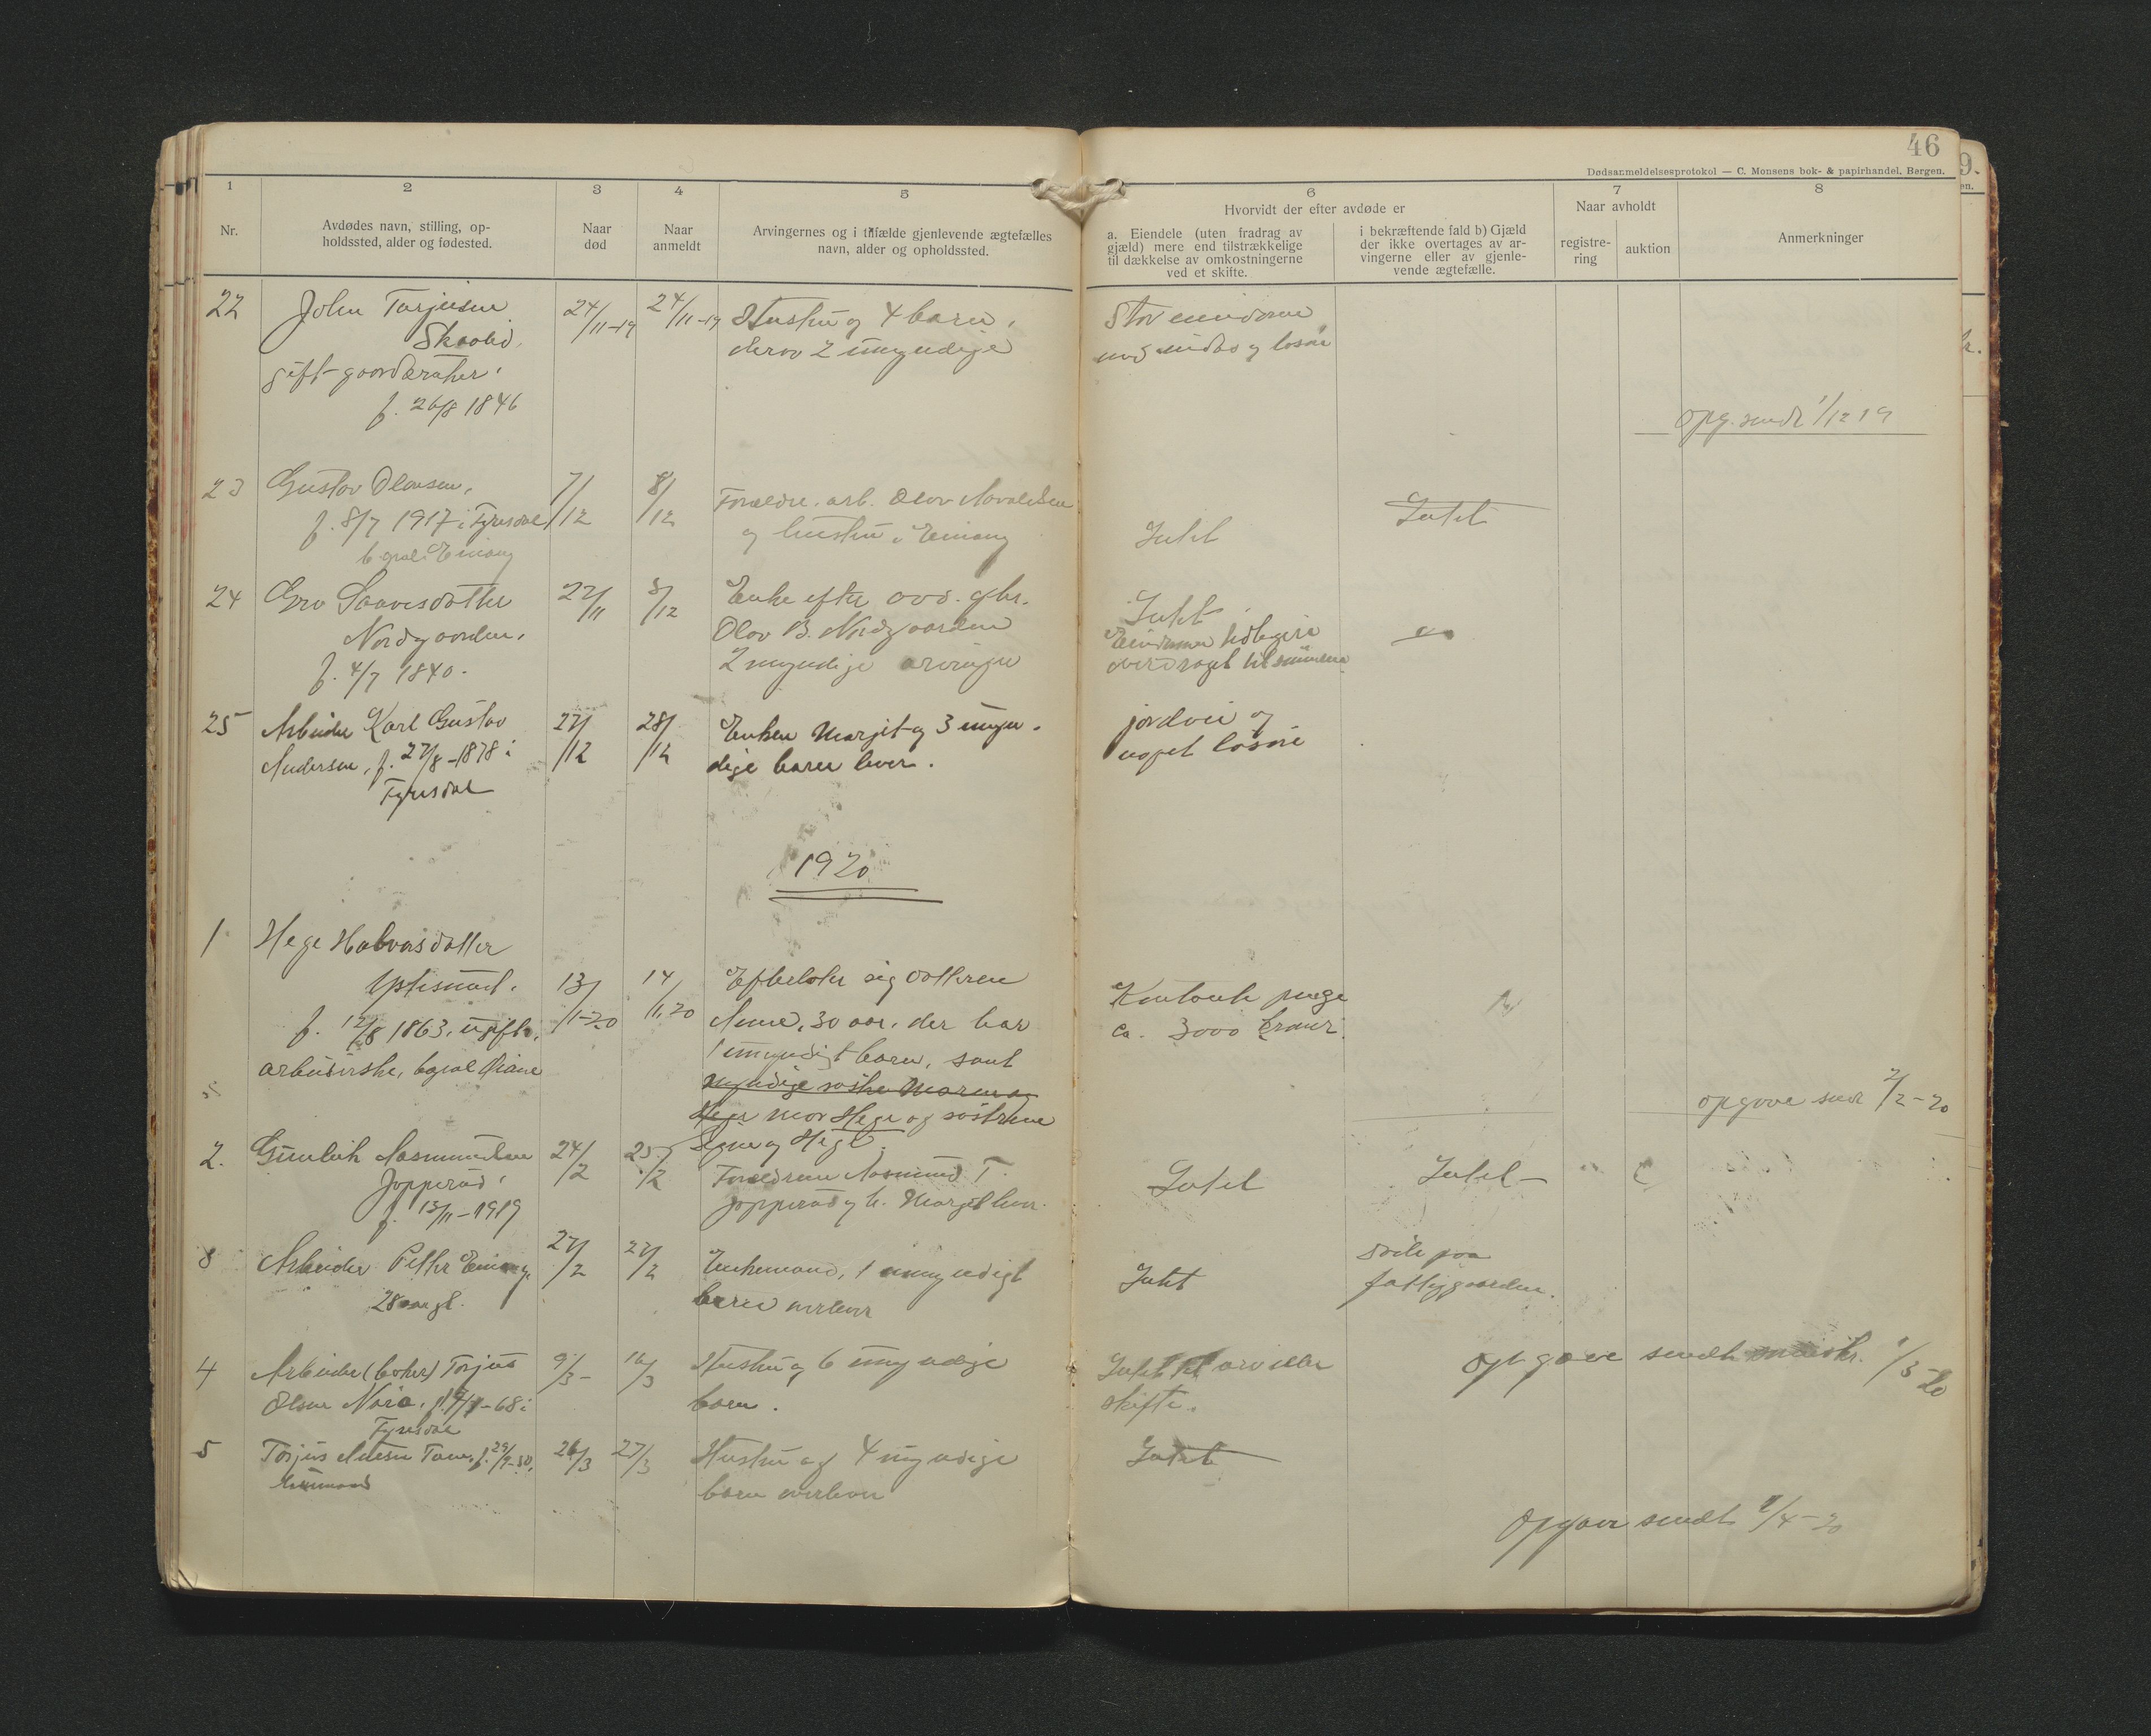 46
Dødsanmeldelsesprotokol — C. Monsens bok- & papirhandel, Bergen.
1 2 3 4 5 6 7 8
Nr.
Avdødes navn, stilling, op-
holdssted, alder og fødested.
Naar
død
Naar
anmeldt
Arvingernes og i tilfælde gjenlevende ægtefælles
navn, alder og opholdssted.
Hvorvidt der efter avdøde er
a. Eiendele (uten fradrag av
gjæld) mere end tilstrækkelige
til dækkelse av omkostningerne
ved et skifte.
i bekræftende fald b) Gjæld
der ikke overtages av ar-
vingerne eller av gjenle-
vende ægtefælle.
Naar avholdt
registre-
ring
auktion
Anmerkninger
22 John Tarjeisen 24/11-19 24/11-19 Hustru og 4 barn,
derav 2 umyndige
gift gaardbruker,
f. 26/8 1846
Stor eiendom
med indbo og løsøre
opg. sendt 1/12 19
23 Gustav Olavsen, 7/12 8/12 Forældre. arb. Olav
f. 8/7 1917 i Fyresdal
og hustru,
Intet
Intet
24 Gro Saavesdotter 22/11 8/12 Enke efter avd. gbr.
Nordgaarden, Olav B. Nordgaarden
f. 4/7 1840. 2 myndige arvinger
Intet
Eiendommen tidligere
overdraget til sønnene
25 Arbeider Karl Gustav 27/12 28/12 Enken Margit og 3 umyn-
Andersen, f. 27/8-1878 i dige barn lever.
Fyresdal
jordvei og
noget løsøre
1920
1 Hege Halvorsdotter
13/1-20 14/1 20 Efterlater sig datteren
f. 12/8 1863, ugift, 30 aar, der har
arbeiderske, 1 umyndigt barn, samt
mor Hege og søstrene
Signe og Hege.
Kontante penge
ca. 3000 kroner.
opgave sendt 2/2-20
2. Gunleik Aasmundsen 24/2 25/2 Forældrene Aasmund T.
Jopperud, Jopperud og h. Margit lever.
f. 13/11-1919
Intet
Intet
3 Arbeider Petter 27/2 27/2 Enkemand, 1 umyndigt
28 aar gl. barn overlever
Intet
paa
fattiggaarden.
4 Arbeider Torjus 9/3- 16/3 Hustru og 6 umyndige
Olsen -68 i barn.
Fyresdal
Intet til arv eller
skifte.
Opgave sendt 1/3-20
5 Torjus 26/3 27/3 Hustru og 4 myndige
barn overlever
Intet
Opgave sendt 1/4-20